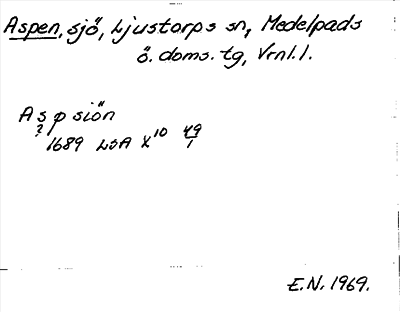 Aspen, sjö, Ljustorps sn, Medelpads
ö. doms. tg, Vrnl. l.
Aspsiön
? 1689 LSA X 10 49/1
E.N. 1969.